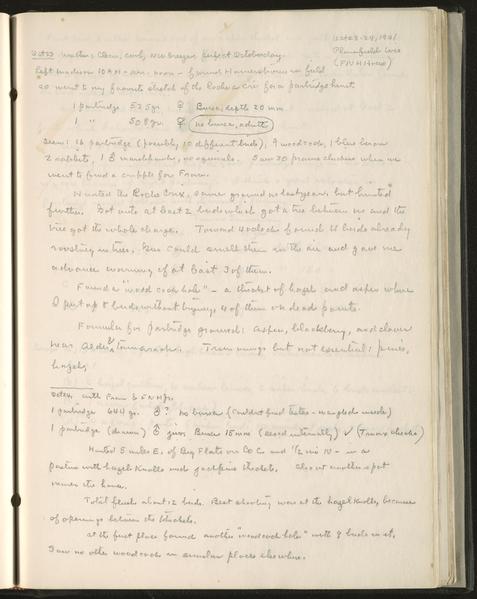 Oct 23-24, 1941
Plainfield Wis
(FNH House)
Oct 23 Weather: Clear, cool, NW breeze, perfect October day.
Left Madison 10 AM - arr. noon - found Hamerstroms in field
so went to my favorite stretch of the Roche a Cri for a partridge hunt
1 partridge 535 gr. ♀ Bursa, depth 20 mm
1 " 508 gr. ♀ no bursa, adult
Seen: 16 partridge (possibly 10 different birds), 9 woodcock, 1 blue heron
2 rabbits, 1 ♂ marsh hawk, no squirrels. Saw 30 prairie chickens when we
went to find a cripple for Fran.
Hunted the Roche Cri, same ground as last year, but hunted
further. Got into at least 2 birds which got a tree between us and the
tree got the whole charge. Toward 4 o'clock found 4 birds already
roosting in trees. Gus could smell them in the air and gave me
advance warning of at least 3 of them.
Found a "woodcock hole" - a thicket of hazel and aspen where
I put up 8 birds without trying; 4 of them on dead points.
Formula for partridge grounds: Aspen, blackberry, and clover
near Alder & Tamarack. Trimmings but not essential: pines,
hazels.
Oct 24 with Fran & FNH Jr.
1 partridge 644 gr. ♂? No bursa (Couldn't find testes - mangled inside)
1 partridge (drawn) ♂ juv. Bursa 15 mm (sexed internally) ✓ (Tmax checks)
Hunted 5 miles E. of Big Flats on Co C and 1/2 mi N - in a
pasture with hazel knolls and jackpine thickets. Also at another spot
nearer the house.
Total flush about 12 birds. Best shooting was at the hazel knolls, because
of openings between the thickets.
At the first place found another "woodcock hole" with 8 birds in it.
Saw no other woodcock in similar places elsewhere.